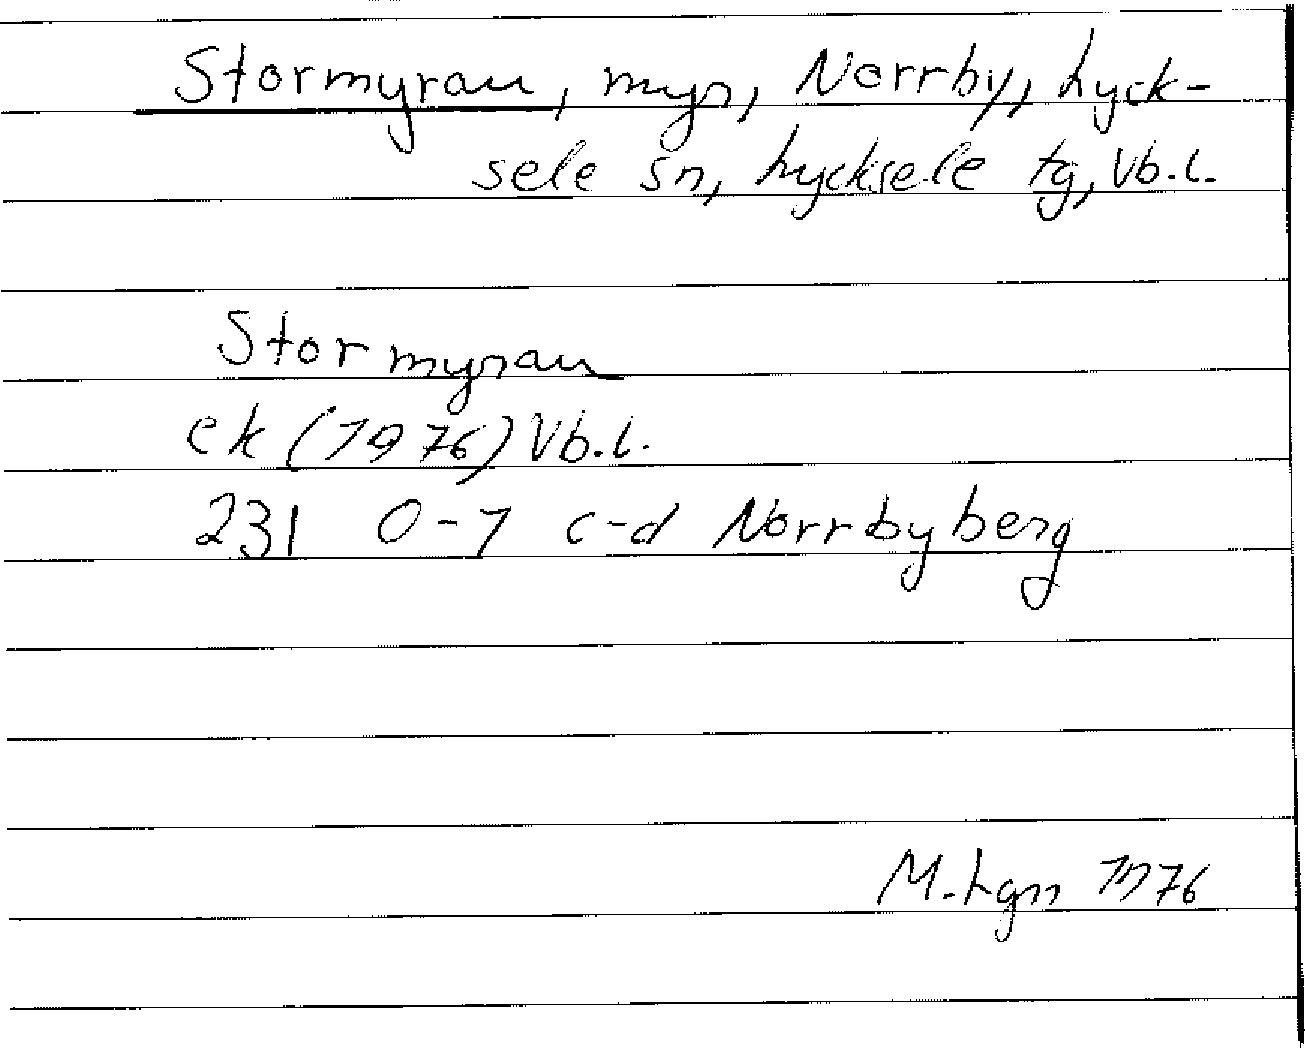 Stormyran, myr, Norrby, Lyck-
sele sn, Lycksele tg, Vb.l.
Stormyran
ek (1976) Vb.l.
231 0-1 c-d Norrbyberg
M. Lgn 1976